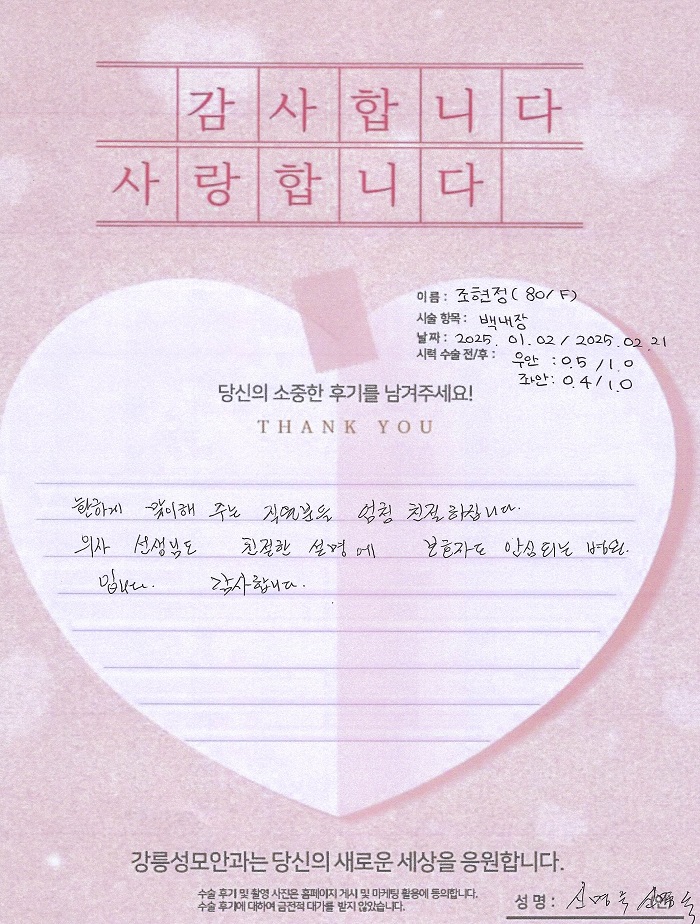 감사합니다
사랑합니다
이름 : 조현정( 80/F)
시술 항목 : 백내장
날짜 : 2025. 01. 02 / 2025. 02. 21
시력 수술 전/후 : 우안 : 0.5 / 1.0
좌안 : 0.4 / 1.0
당신의 소중한 후기를 남겨주세요!
THANK YOU
환하게 맞이해 주는 직원분들 엄청 친절하십니다.
의사 선생님도 친절한 설명에 보호자도 안심되는 병원
입니다. 감사합니다.
강릉성모안과는 당신의 새로운 세상을 응원합니다.
수술 후기 및 촬영 사진은 홈페이지 게시 및 마케팅 활용에 동의합니다.
수술 후기에 대하여 금전적 대가를 받지 않았습니다.
성명 : 신명숙